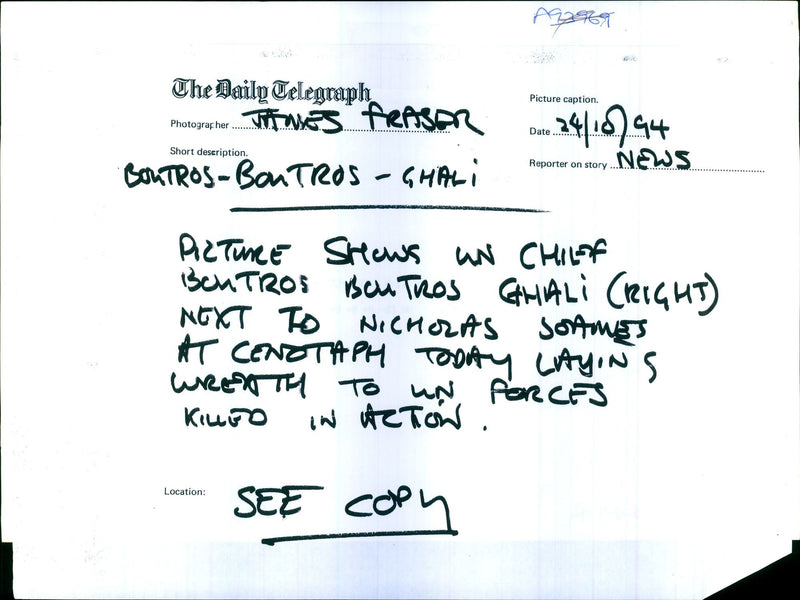 The Daily Telegraph
Picture caption.
Photographer JAMES FRASER
Date 24/10/94
Short description.
Reporter on story NEWS
BOUTROS-BOUTROS-GHALI
PICTURE SHOWS UN CHIEF
BOUTROS BOUTROS GHALI (RIGHT)
NEXT TO NICHOLAS SOAMES
AT CENOTAPH TODAY LAYING
WREATH TO UN FORCES
KILLED IN ACTION.
Location: SEE COPY